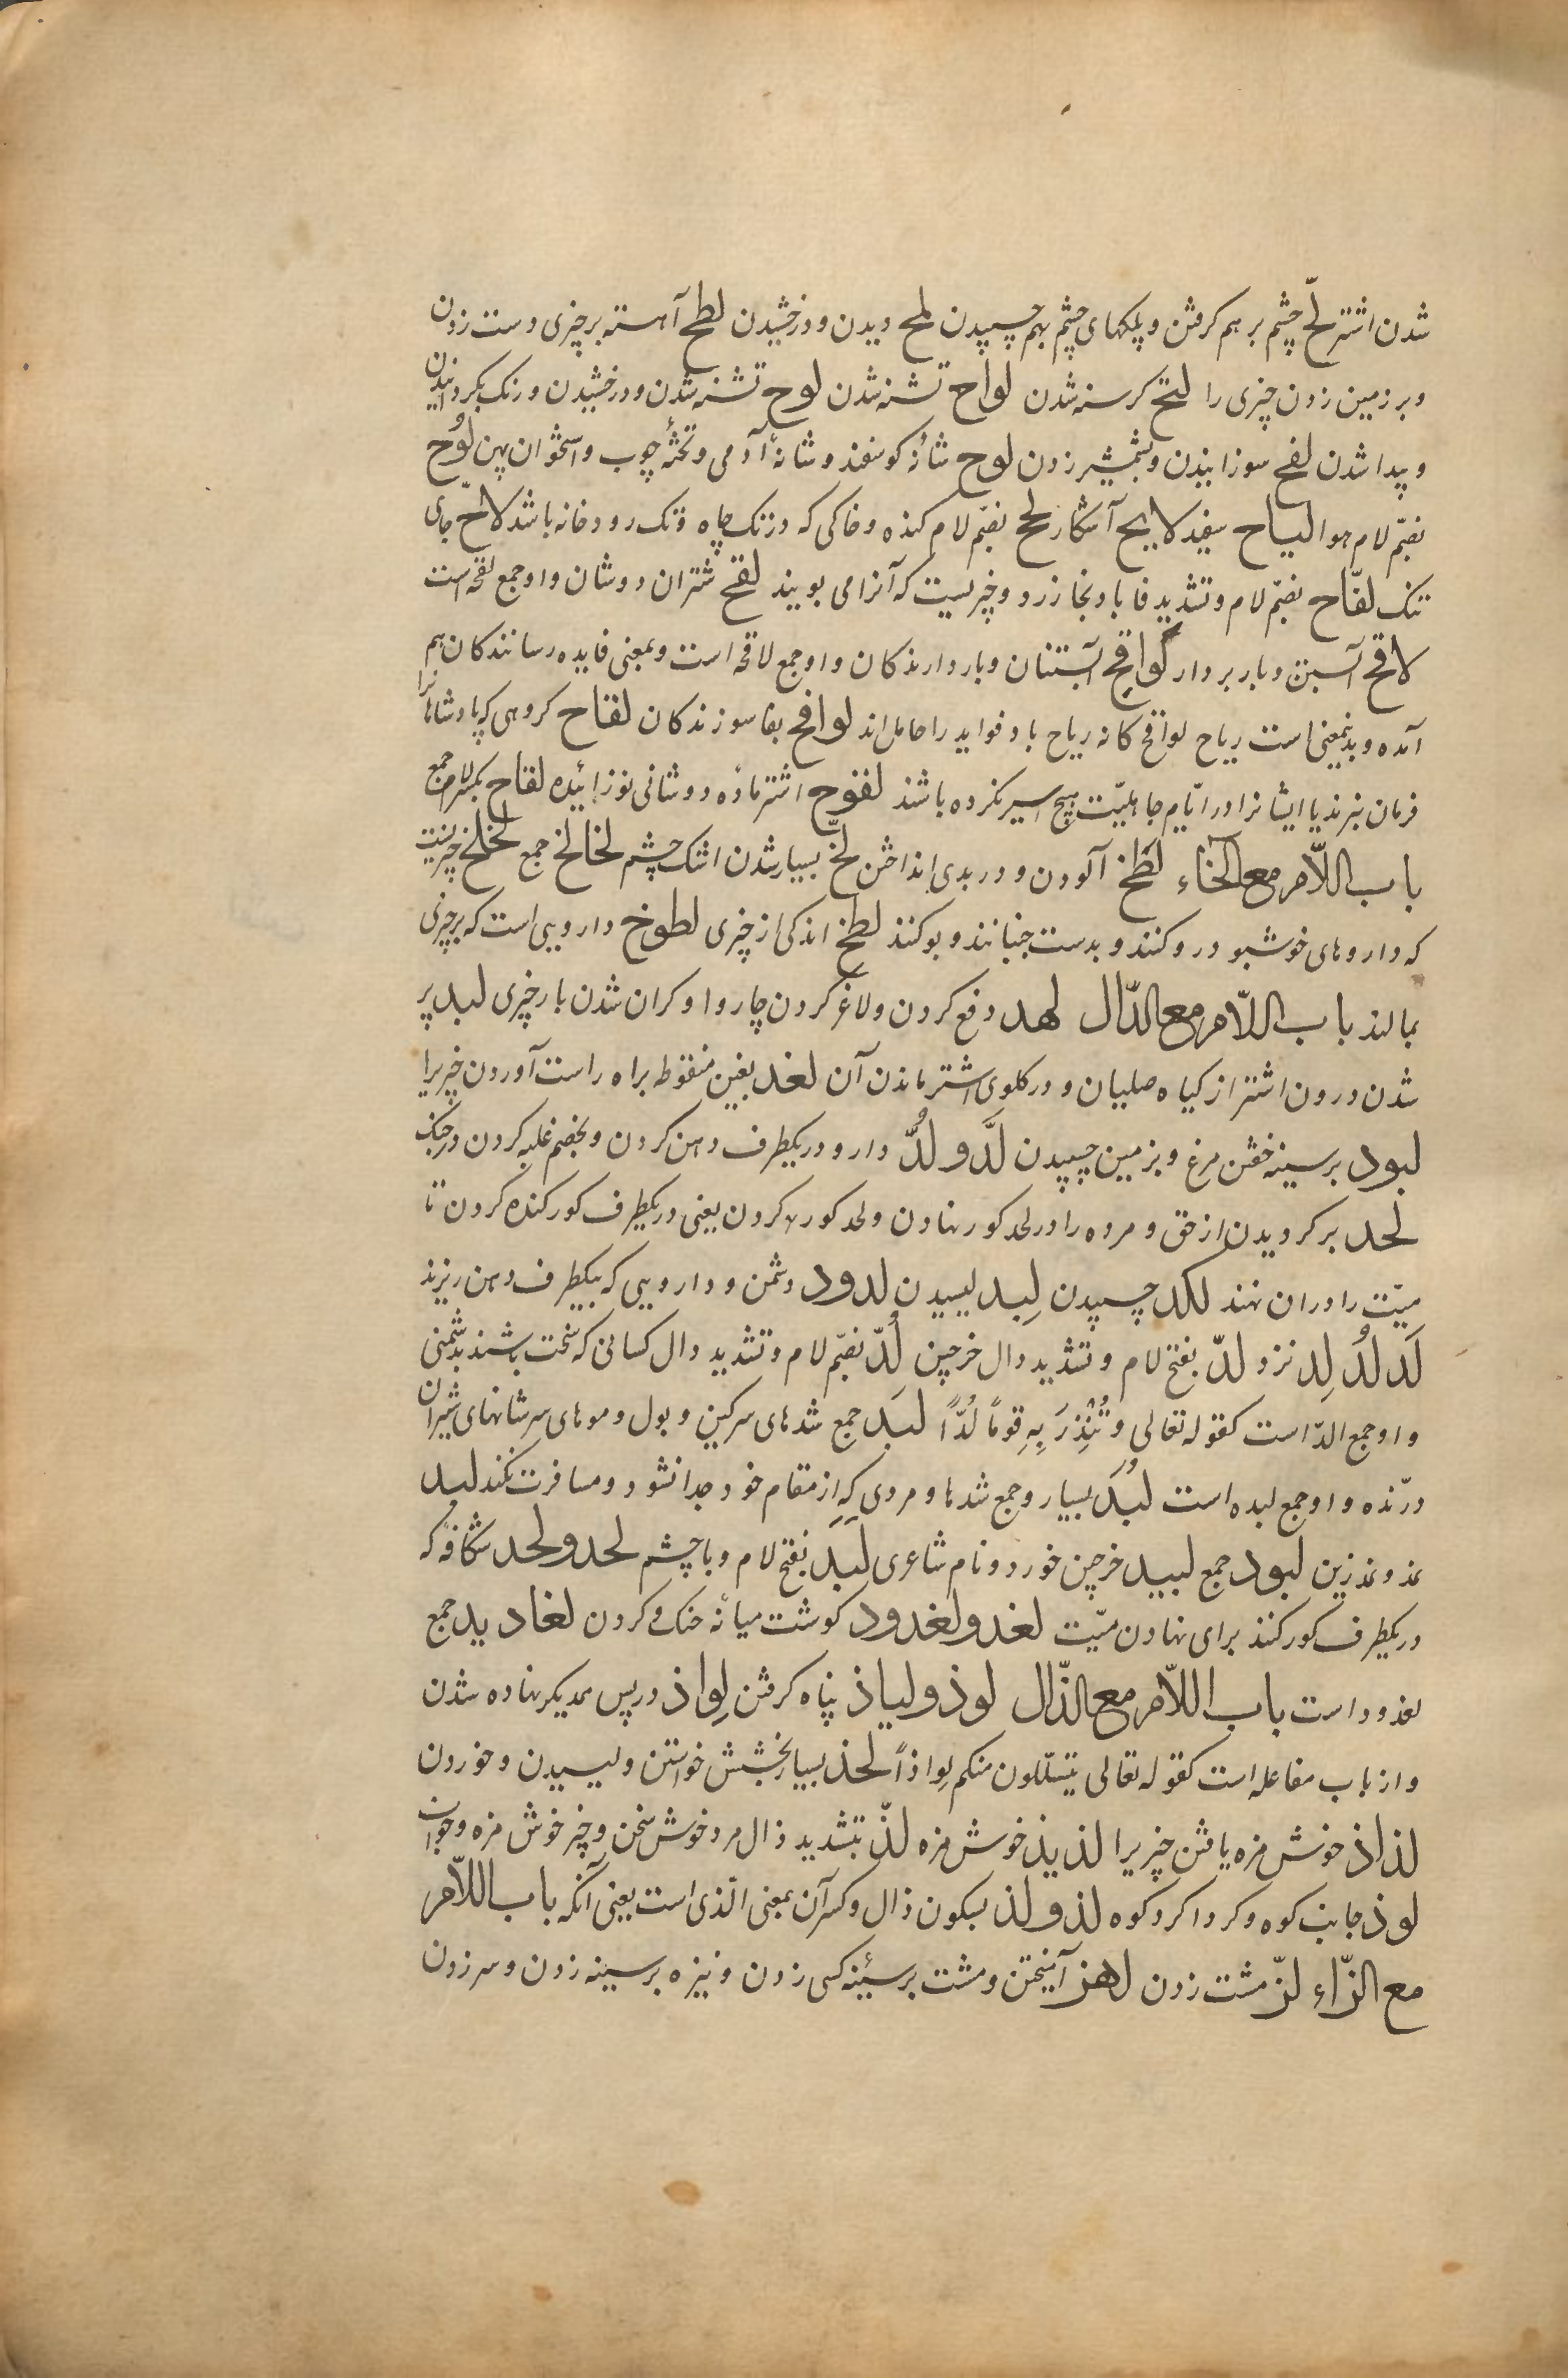 شدن اشتر لحّ چشم بر هم کرفتن و پلکهای چشم بهم چسپیدن لمح دیدن و درخشیدن لطح آهسته بر چیزی دست زدن
و بر زمین زدن چیزی را لتح کرسنه شدن لواح تشنه شدن لوح تشنه شدن و درخشیدن و رنک بکردانیدن
و پیدا شدن لفح سوزانیدن و شمشیر زدن لوح شانهٔ کوسفند و شانهٔ آدمی و تختهٔ چوب و استخوان پهن لُوح
بضمّ لام هوا لیاح سفید لایح آشکار لحّ بضمّ لام کنده و خاکی که در تک چاه و تک رودخانه باشد لاحّ جای
تنک لفّاح بضمّ لام و تشدید فا بادنجان زرد و چیزیست که آنرا می بویند لقح شتران دوشان و او جمع لقحه است
لاقح آبستن و بار بردار لواقح آبستنان و بار دارندکان و او جمع لاقحه است و بمعنی فایده رسانندکان هم
آمده و بدینمعنی است ریاح لواقح کانه ریاح باد فواید را حامل اند لوافح بفا سوزندکان لقاح کروهی که پادشاهانرا
فرمان نبرند یا ایشانرا در ایّام جاهلیّت هیچ اسیر نکرده باشند لقوح اشتر مادهٔ دوشانی نوزائیده لقاح بکسر لام جمع
باب اللّام مع الخاء لطخ آلودن و در بدی انداختن لخّ بسیار شدن اشک چشم لخالخ جمع لخلخ چیزیست
که داروهای خوشبو درو کنند و بدست جنبانند و بو کنند لطخ اندکی از چیزی لطوخ دارویی است که بر چیزی
بمالند باب اللّام مع الدّال لهد دفع کردن و لاغر کردن چاروا و کران شدن بار چیزی لبد پر
شدن درون اشتر از کیاه صلیان و در کلوی اشتر ماندن آن لغد بغین منقوطه براه راست آوردن چیزیرا
لبود بر سینه خفتن مرغ و بزمین چسپیدن لَدّ و لُدّ دارو در یکطرف دهن کردن و بخصم غلبه کردن در جنک
لحد بر کردیدن از حق و مرده را در لحد کور نهادن و لحد کور کردن یعنی در یکطرف کور کنده کردن تا
میّت را در ان نهند لکد چسپیدن لِبد لیسیدن لدود دشمن و دارویی که بیکطرف دهن ریزند
لَد لُد لِد نزد لدّ بفتح لام و تشدید دال خرجین لُدّ بضمّ لام و تشدید دال کسانی که سخت باشند بدشمنی
و او جمع الدّ است کقوله تعالی و تُنْذِرَ بِهِ قومًا لُدًّا لبَد جمع شدهای سرکین و بول و موهای سرشانهای شیران
درّنده و او جمع لبده است لُبَد بسیار و جمع شدها و مردی که از مقام خود جدا نشود و مسافرت نکند لبد
نمد و نمد زین لبود جمع لبید خرجین خورد و نام شاعری لَبَد بفتح لام و با چشم لحد و لحد شکافهٔ که
در یکطرف کور کنند برای نهادن میّت لغد و لغدود کوشت میانهٔ حنک و کردن لغادید جمع
لغدود است باب اللّام مع الذّال لوذ و لیاذ پناه کرفتن لِواذ در پس همدیکر نهاده شدن
و از باب مفاعله است کقوله تعالی یتسلّلون منکم لِواذاً لحذ بسیار بخشش خواستن و لیسیدن و خوردن
لذاذ خوش مزه یافتن چیزیرا لذیذ خوش مزه لذّ بتشدید ذال مرد خوش سخن و چیز خوش مزه و خواب
لوذ جانب کوه و کردا کرد کوه لذ و لذ بسکون ذال و کسر آن بمعنی الّذی است یعنی آنکه باب اللّام
مع الزّاء لزّ مشت زدن لهز آمیختن و مشت بر سینهٔ کسی زدن و نیزه بر سینه زدن و سر زدن